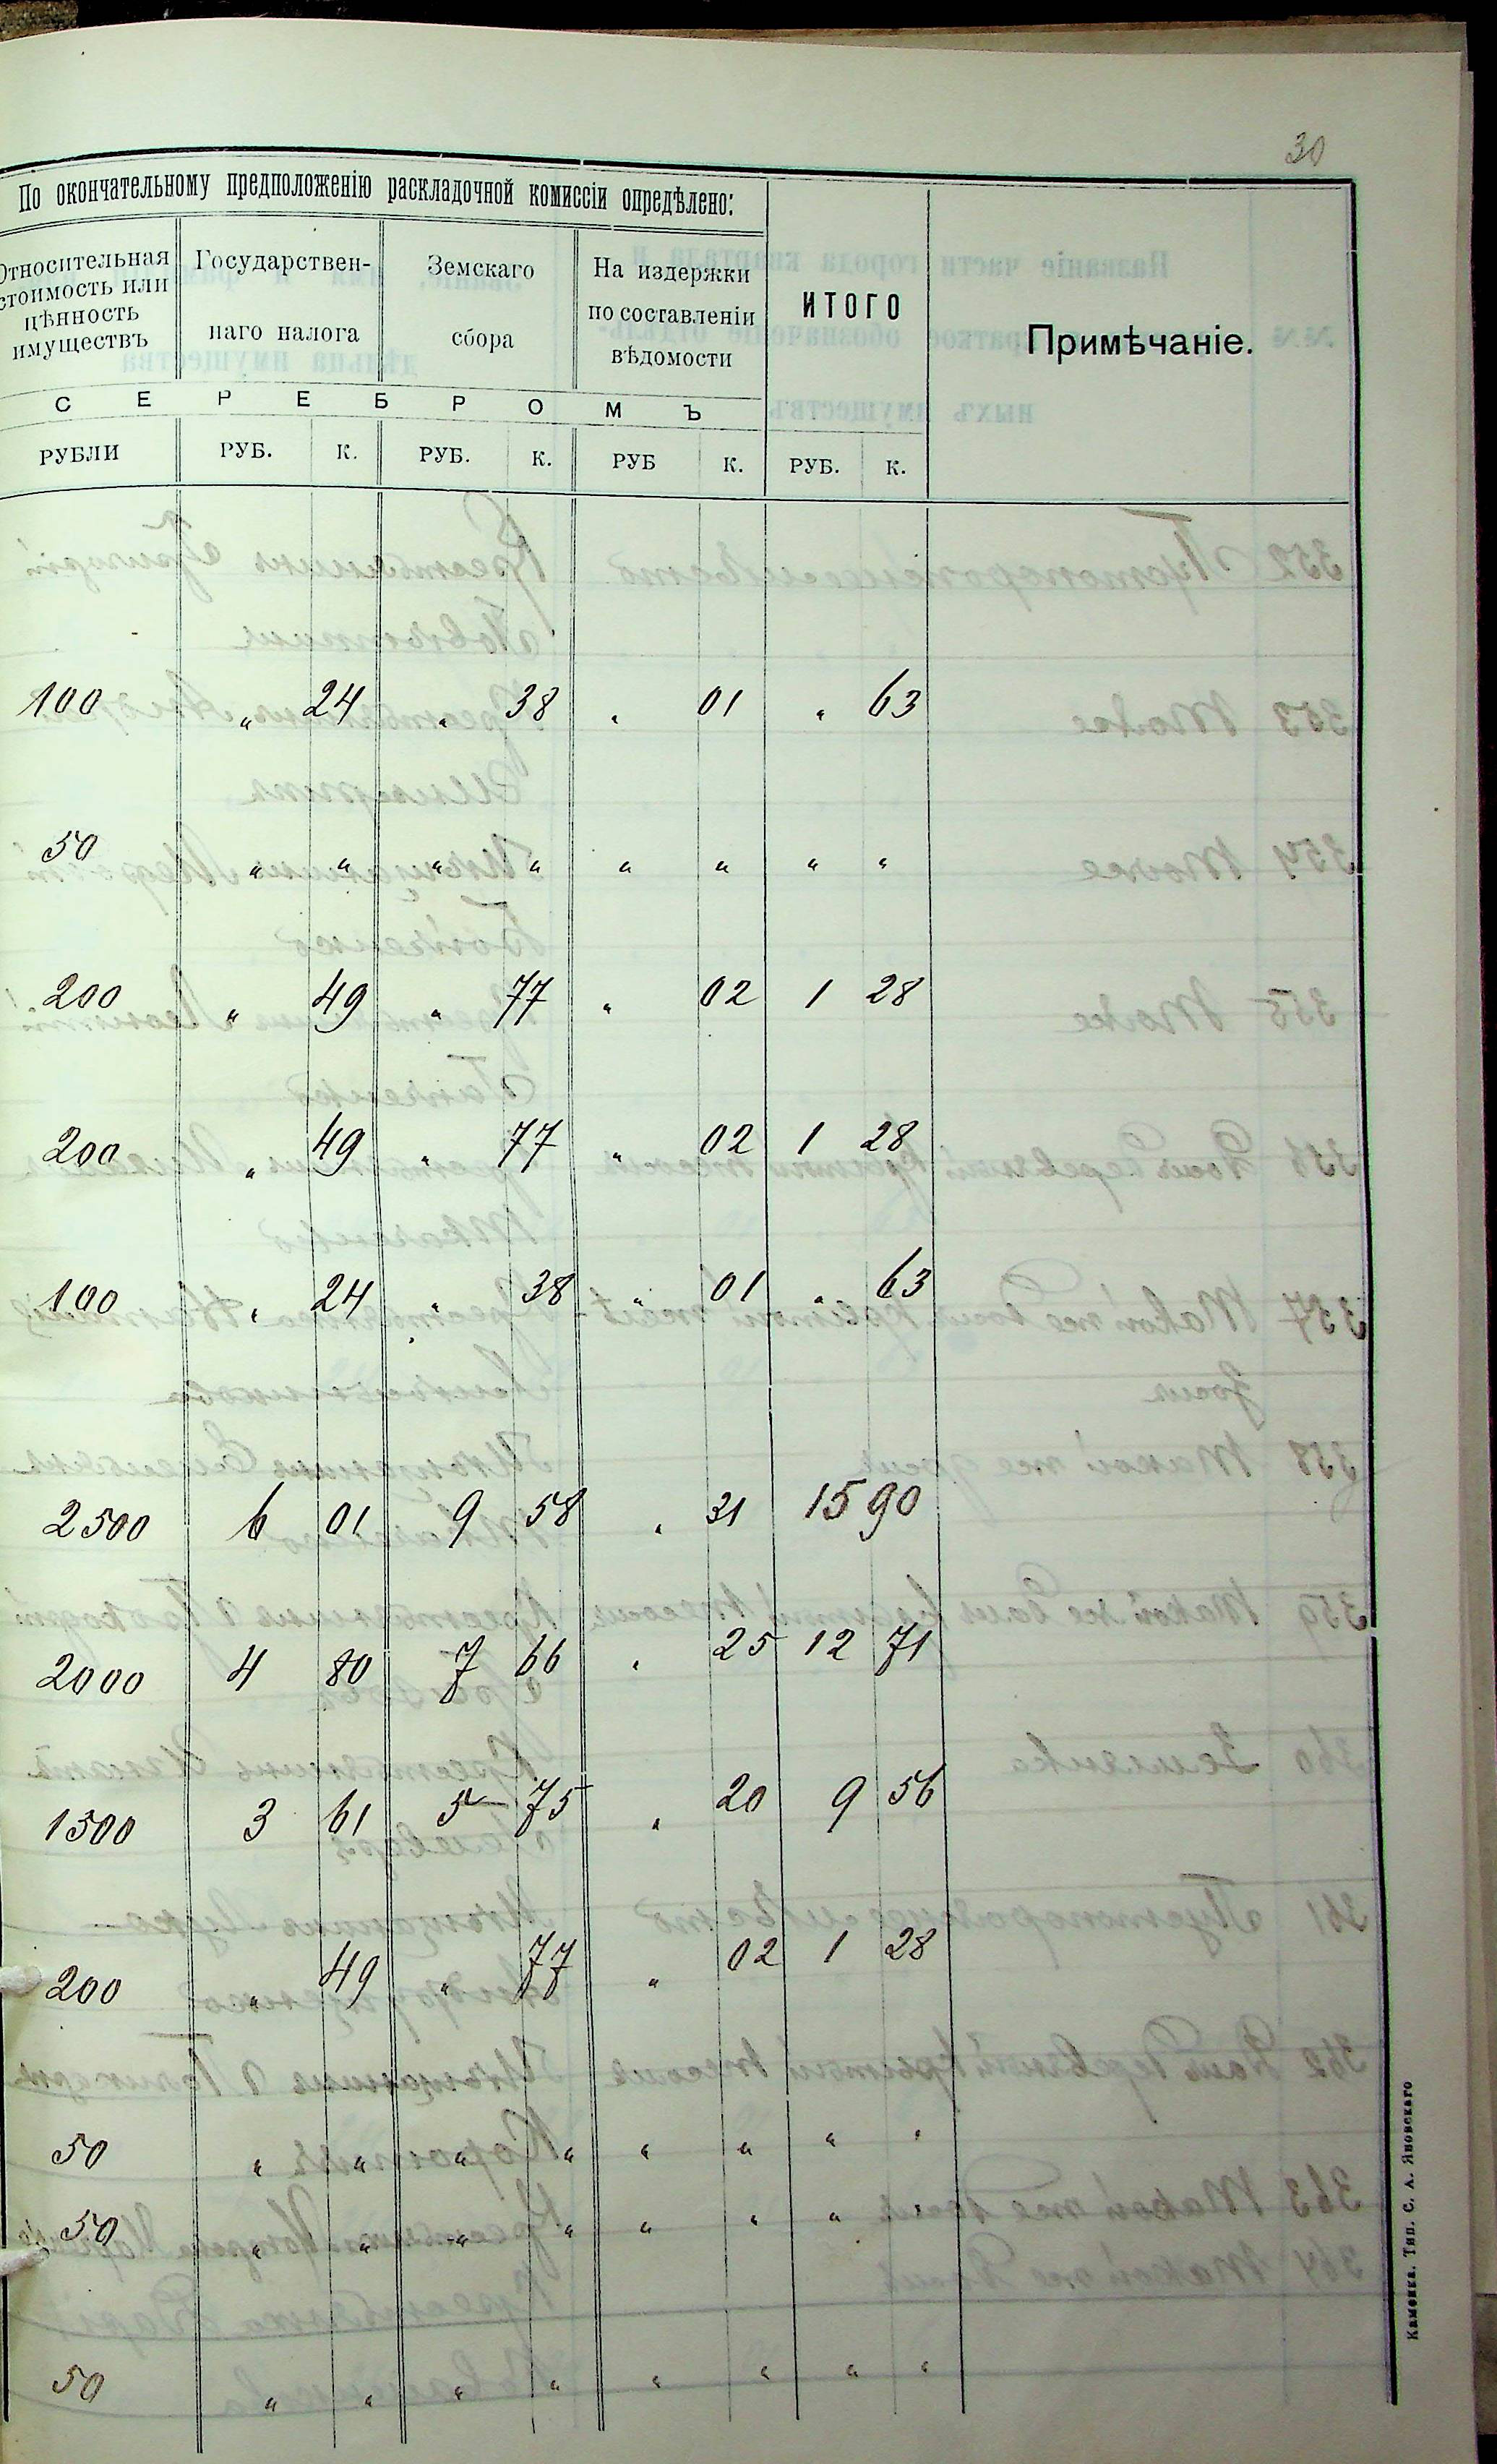 30
По окончательному предположенію раскладочной комиссіи опредѣлено:
Относительная стоимость или цѣнность имуществъ
Государственнаго налога
Земскаго сбора
На издержки по составленіи вѣдомости
ИТОГО
Примѣчаніе.
СЕРЕБРОМЪ
РУБЛИ РУБ. К. РУБ. К. РУБ К. РУБ. К.
100 „ 24 „ 38 „ 01 „ 63
50 „ „ „ „ „ „ „ „
200 „ 49 „ 77 „ 02 1 28
200 „ 49 „ 77 „ 02 1 28
100 „ 24 „ 38 „ 01 „ 63
2500 6 01 9 58 „ 31 15 90
2000 4 80 7 66 „ 25 12 71
1500 3 61 5 75 „ 20 9 56
200 „ 49 „ 77 „ 02 1 28
50 „ „ „ „ „ „ „ „
50 „ „ „ „ „ „ „ „
50 „ „ „ „ „ „ „ „
Каменка. Тип. С. А. Яновскаго